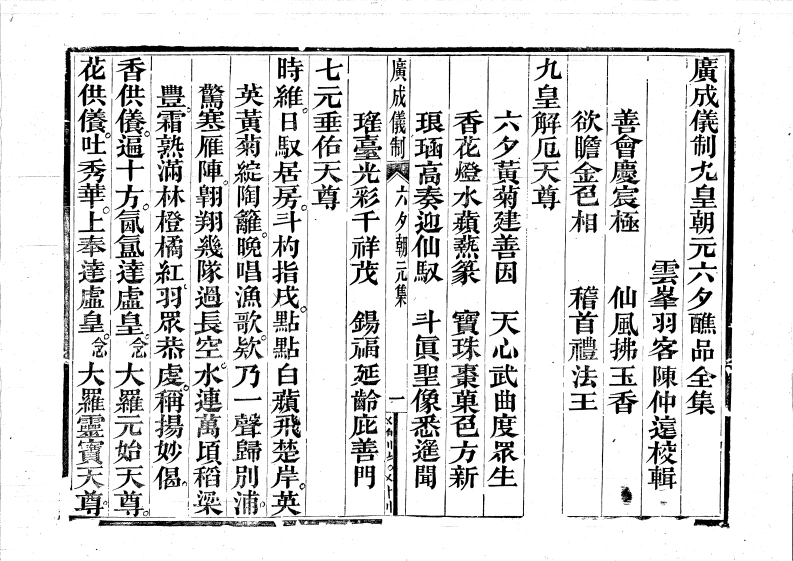 廣成儀制九皇朝元六夕醮品全集
雲峯羽客陳仲遠校輯
善會慶宸極　仙風拂玉香
欲瞻金色相　稽首禮法王
九皇解厄天尊
六夕黃菊建善因　天心武曲度眾生
香花燈水蘋蘩篆　寶珠棗菓色方新
琅函高奏迎仙馭　斗眞聖像悉遙聞
廣成儀制　六夕朝元集　一
瑤臺光彩千祥茂　錫福延齡庇善門
七元垂佑天尊
時維。日馭居房。斗杓指戌。點點白蘋飛楚岸。英
英黃菊綻陶籬。晚唱漁歌。欵乃一聲歸別浦。
驚寒雁陣。翺翔幾隊過長空。水連萬頃稻粱
豐。霜熟滿林橙橘紅。羽眾恭虔。稱揚妙偈。
香供養。遍十方。氤氳達虛皇。念大羅元始天尊。
花供養。吐秀華。上奉達虛皇。念大羅靈寶天尊。